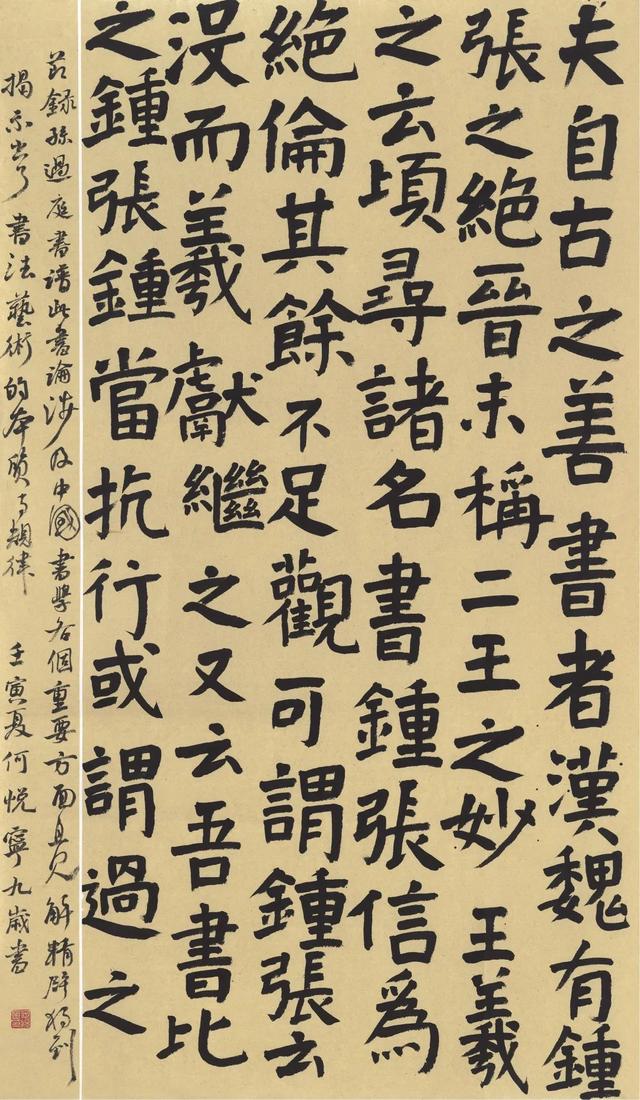 夫自古之善書者漢魏有鍾
張之絕晉末稱二王之妙王羲
之云頃尋諸名書鍾張信爲
絕倫其餘不足觀可謂鍾張云
没而羲獻繼之又云吾書比
之鍾張鍾當抗行或謂過之
節錄孫過庭書譜此書論涉及中國書學各個重要方面且见解精辟獨到
揭示出了書法藝術的本質与規律 壬寅夏何悅寧九歲書